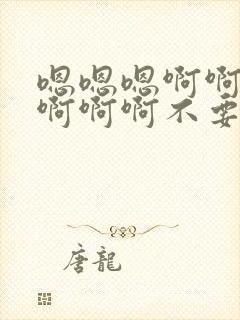 嗯嗯嗯啊啊
啊啊啊不要
唐龍